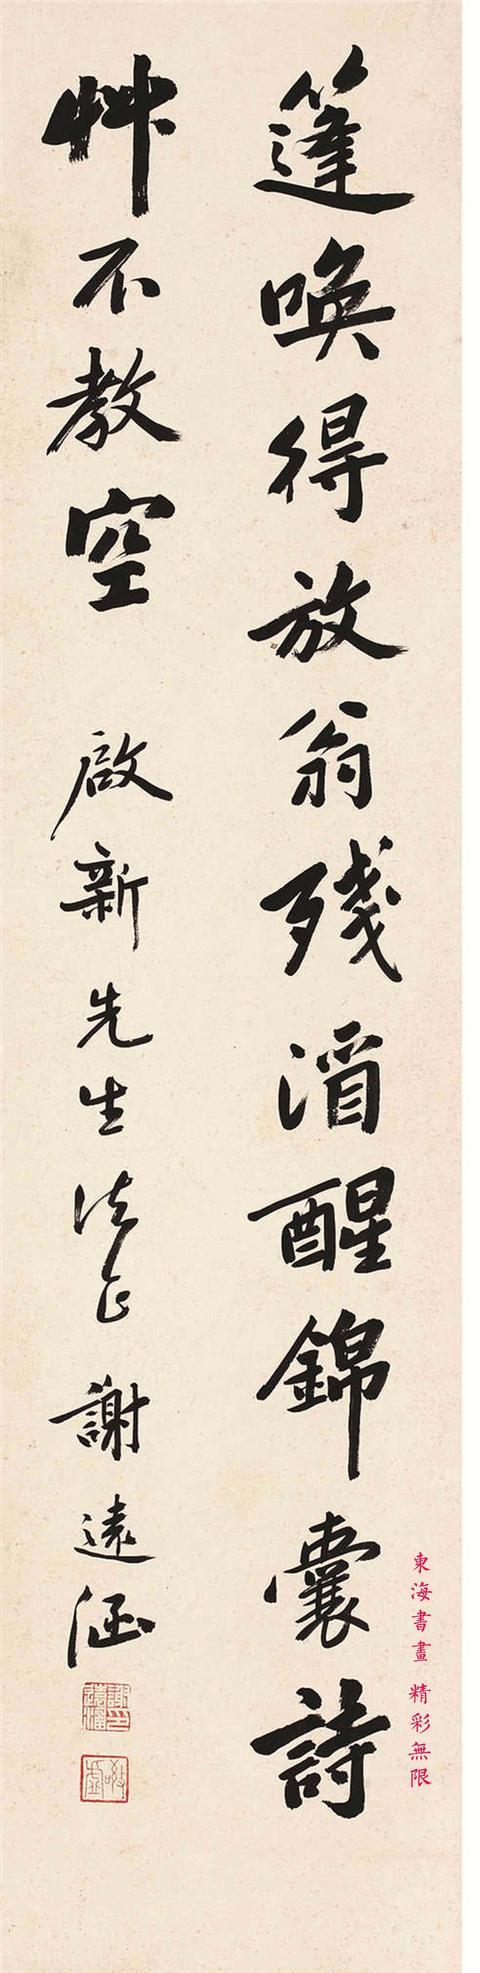 篷喚得放翁殘酒醒錦囊詩
艸不教空 啟新先生法正 謝遠涵
謝印遠涵
敬虛
東海書畫 精彩無限